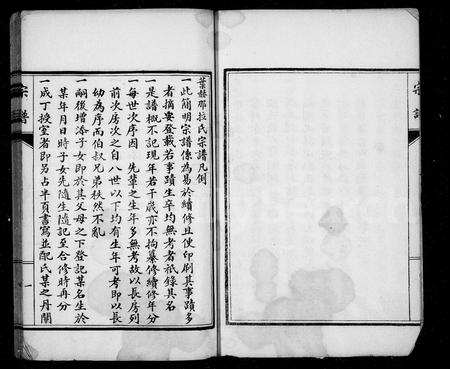 葉赫那拉氏宗譜凡例
一此簡明宗譜係為易於續修且便印刷其事蹟多
者摘要登載若事蹟生卒均無考者祇錄其名
一是譜概不記現年若干歲亦不拘纂修續修年分
一每世次序因 先輩之生年多無考故以長房列
前次房次之自八世以下均有生年可考即以長
幼為序而伯叔兄弟秩然不亂
一嗣後增添子女即於其父母之下登記某名生於
某年月日時子女先隨生隨記至合修時再分
一成丁授室者即另占半頁書寫並配氏某之丹闡
宗譜
一
宗譜